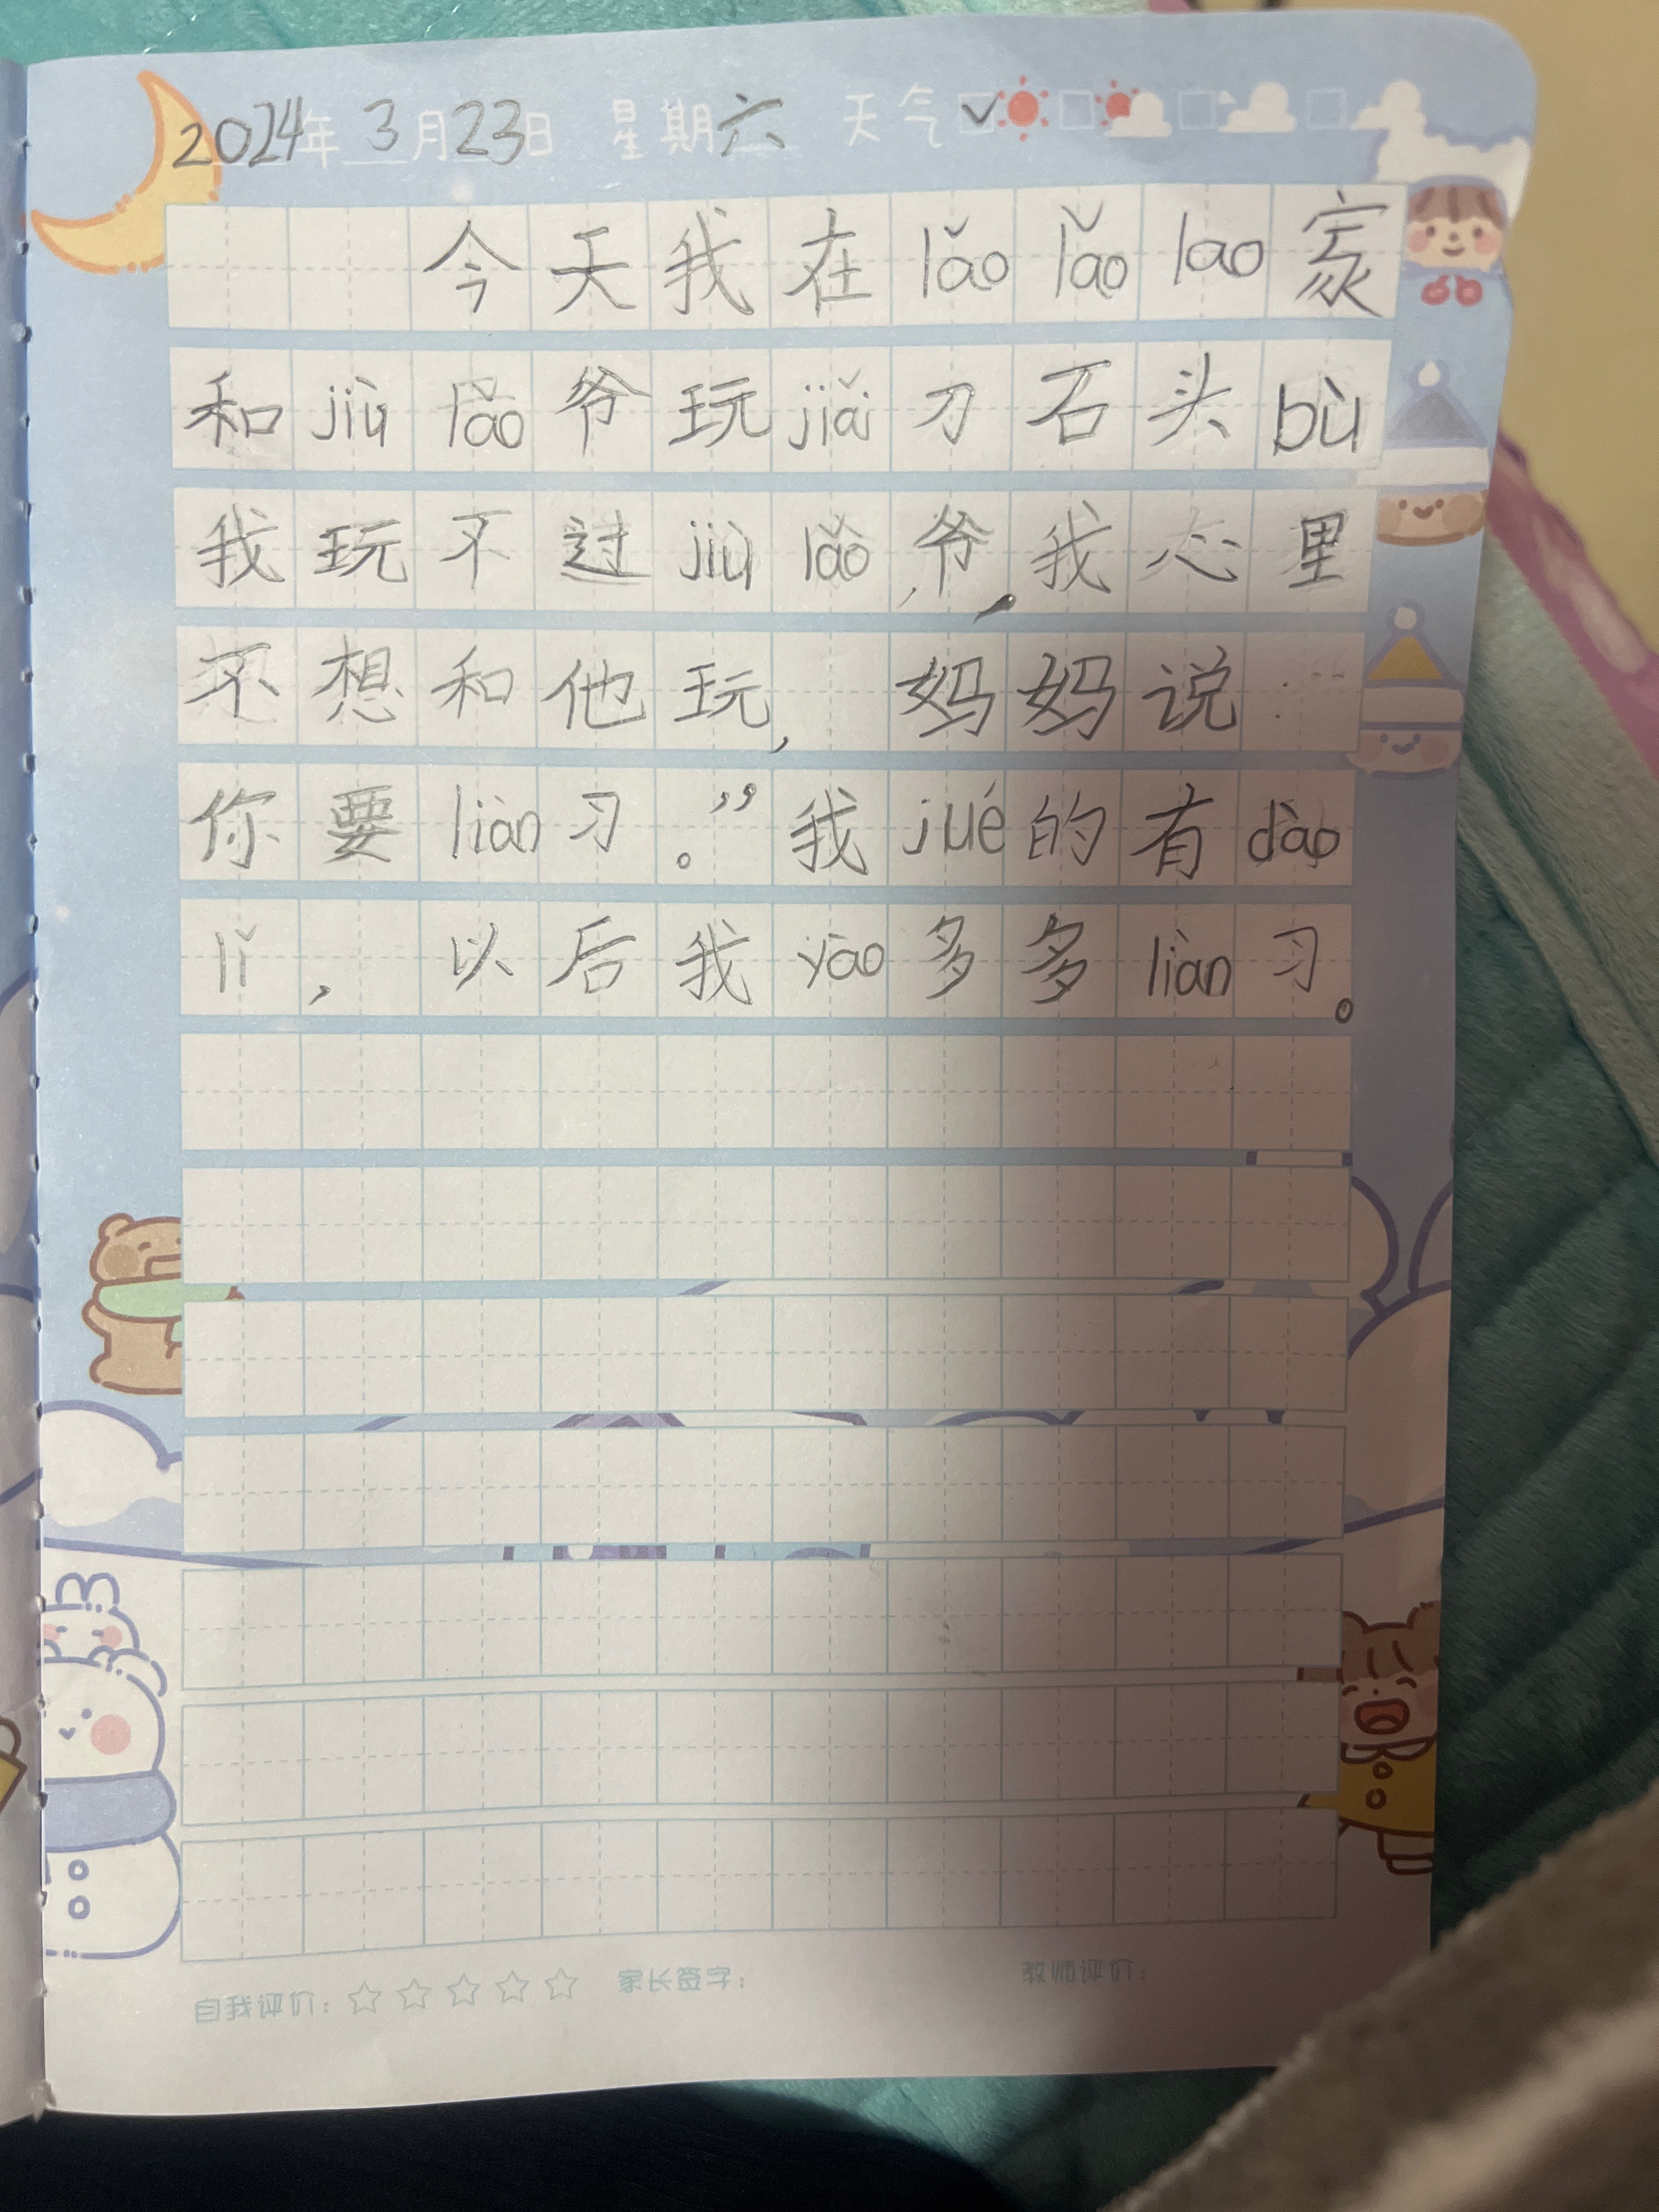 2024年 3月23日 星期六 天气
今天我在lǎo lǎo lao家
和jiù lǎo爷玩jiǎi刀石头bù
我玩不过jiù lǎo爷,我心里
不想和他玩,妈妈说:“
你要liàn习。”我jué的有dào
lǐ,以后我yào多多liàn习。
自我评价: 家长签字: 教师评价: